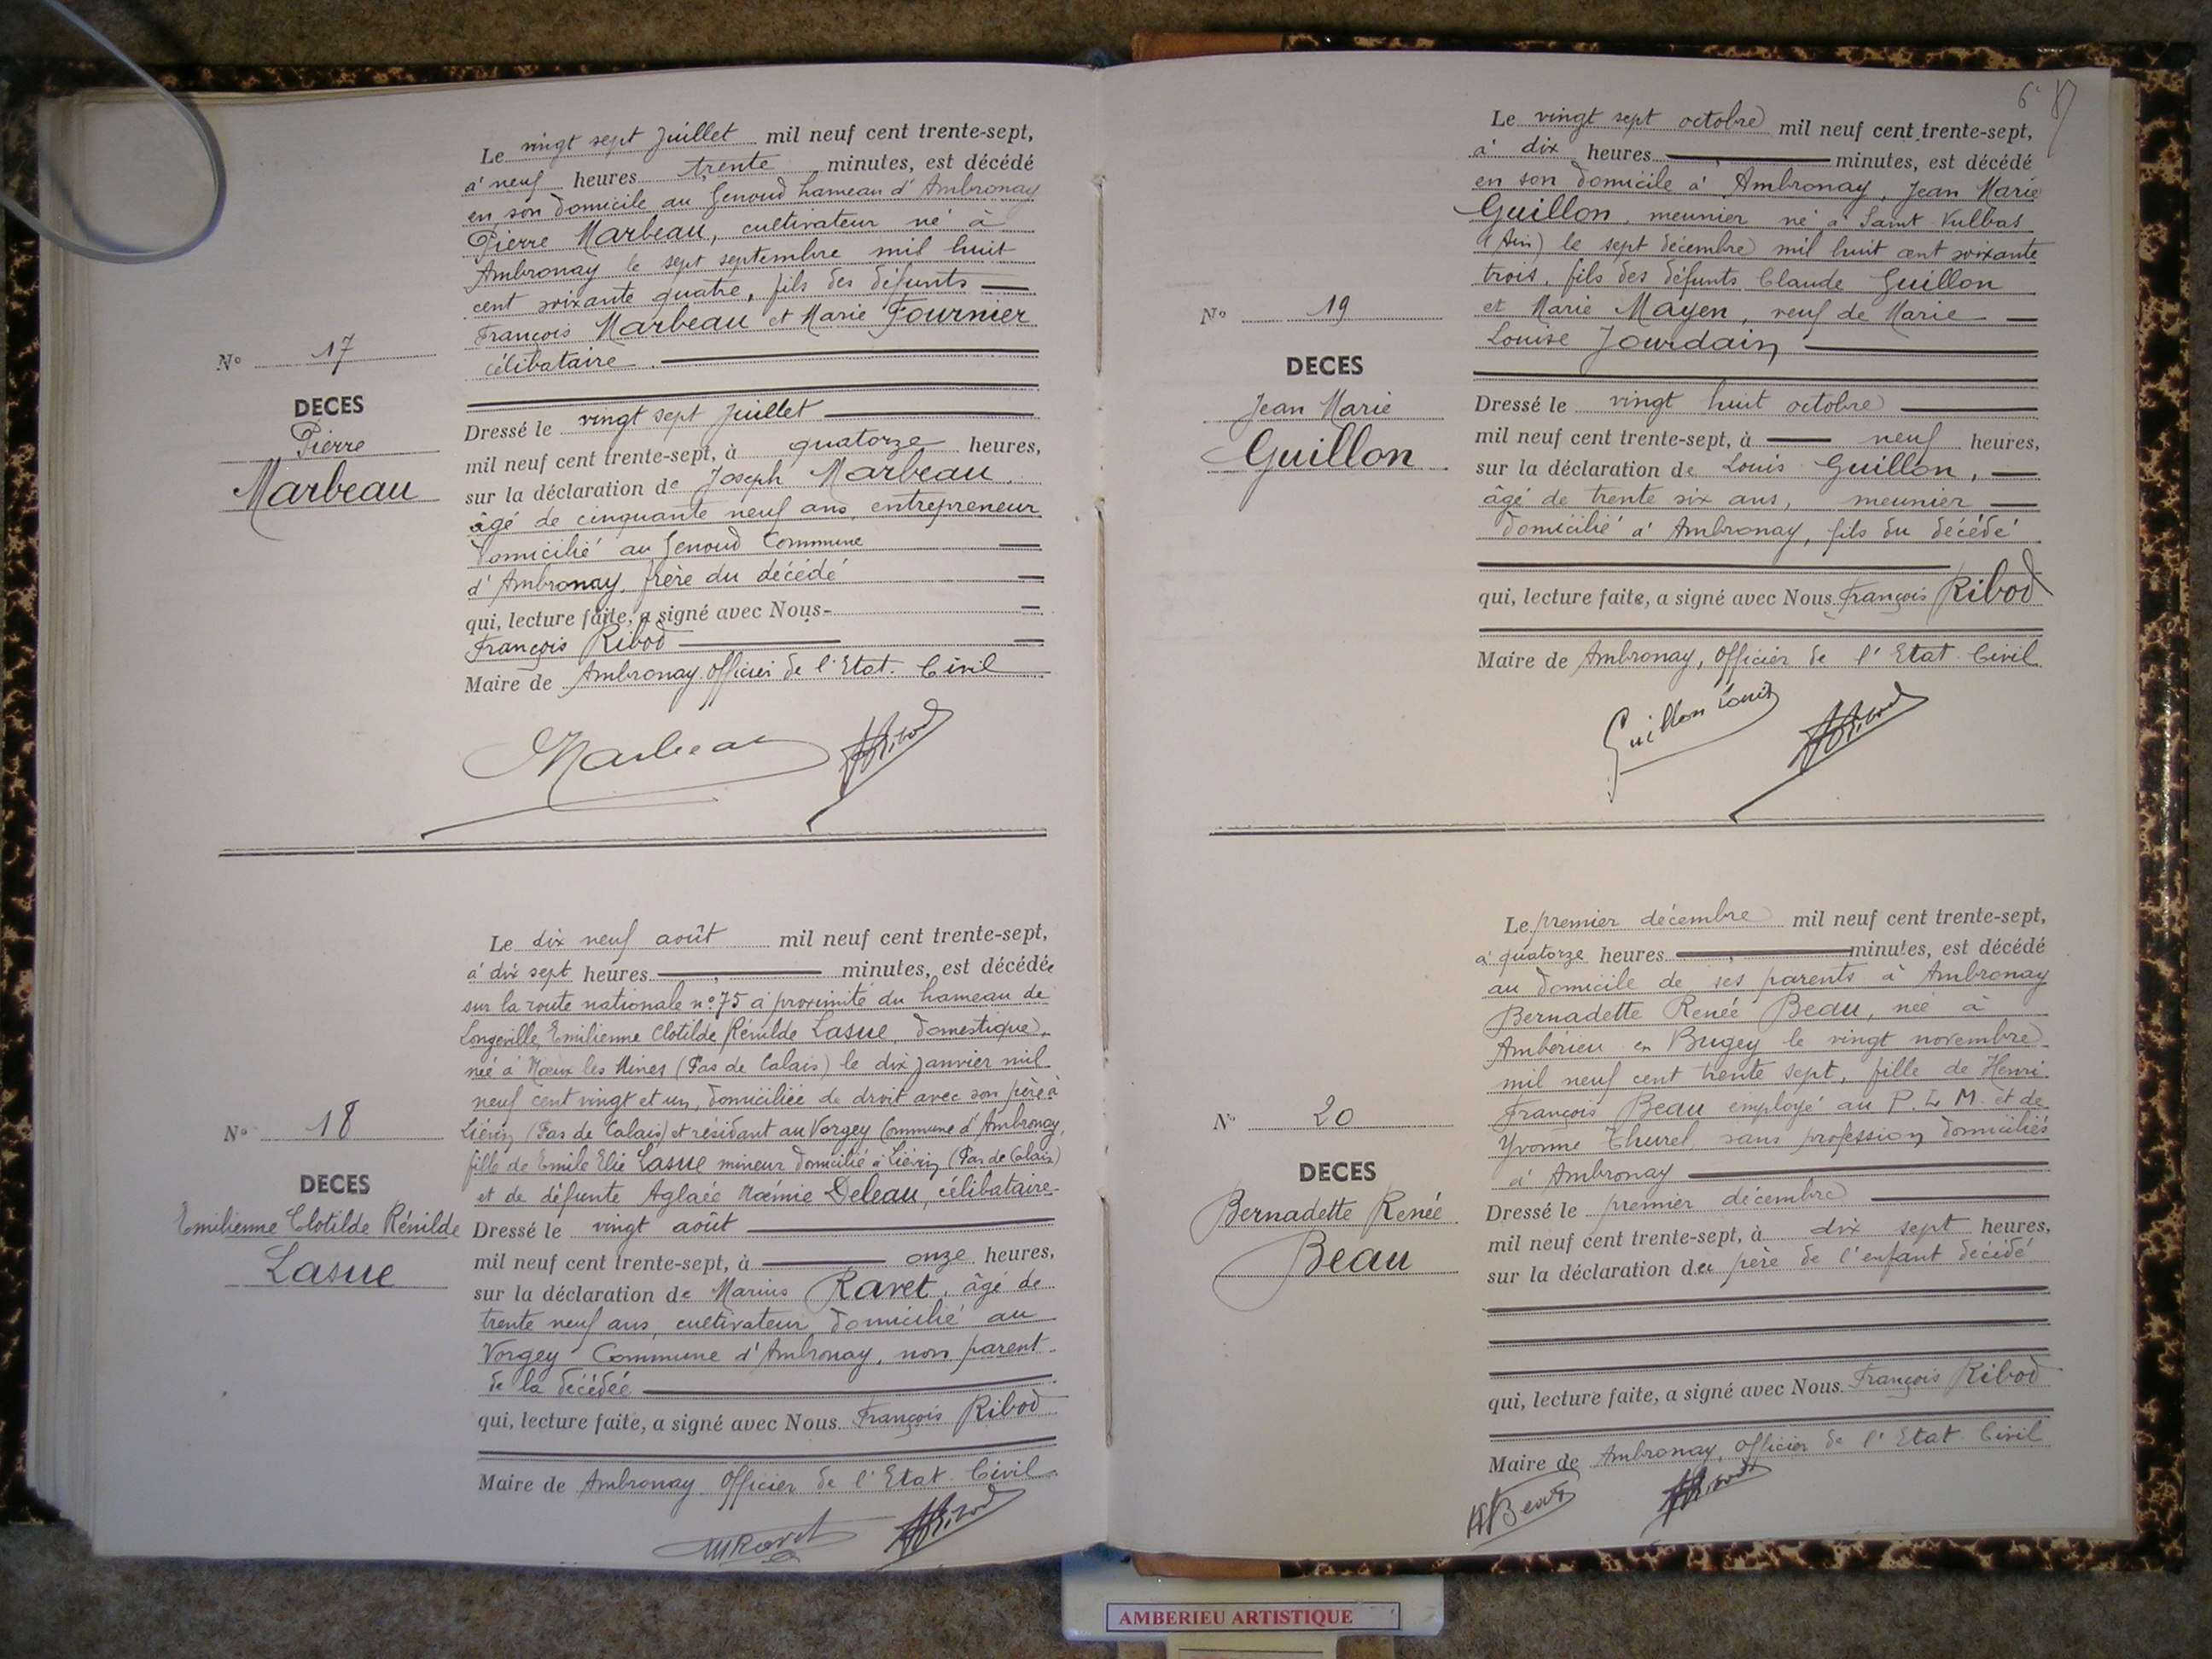 N° 17
DECES
Pierre
Marbeau
Le vingt sept Juillet mil neuf cent trente-sept,
à neuf heures trente minutes, est décédé
en son domicile au Genoud hameau d'Ambronay
Pierre Marbeau, cultivateur né à
Ambronay le sept septembre mil huit
cent soixante quatre, fils des défunts
François Marbeau et Marie Fournier
célibataire
Dressé le vingt sept Juillet
mil neuf cent trente-sept, à quatorze heures,
sur la déclaration de Joseph Marbeau,
âgé de cinquante neuf ans, entrepreneur
domicilié au Genoud Commune
d'Ambronay, frère du décédé
qui, lecture faite, a signé avec Nous
François Ribod
Maire de Ambronay Officier de l'Etat Civil
Marbeau
Ribod
N° 18
DECES
Emilienne Clotilde Rénilde
Lasue
Le dix neuf août mil neuf cent trente-sept,
à dix sept heures minutes, est décédée
sur la route nationale n° 75 à proximité du hameau de
Longeville, Emilienne Clotilde Rénilde Lasue, domestique,
née à Nœux les Mines (Pas de Calais) le dix janvier mil
neuf cent vingt et un, domiciliée de droit avec son père à
Liévin (Pas de Calais) et résidant au Vorgey Commune d'Ambronay,
fille de Emile Elie Lasue mineur domicilié à Liévin (Pas de Calais)
et de défunte Aglaée Noémie Deleau, célibataire
Dressé le vingt août
mil neuf cent trente-sept, à onze heures,
sur la déclaration de Marius Ravet, âgé de
trente neuf ans, cultivateur domicilié au
Vorgey Commune d'Ambronay, non parent
de la décédée
qui, lecture faite, a signé avec Nous François Ribod
Maire de Ambronay Officier de l'Etat Civil
MRavet
Ribod
N° 19
DECES
Jean Marie
Guillon
Le vingt sept octobre mil neuf cent trente-sept,
à dix heures minutes, est décédé
en son domicile à Ambronay, Jean Marie
Guillon, meunier né à Saint Vulbas
(Ain) le sept décembre mil huit cent soixante
trois, fils des défunts Claude Guillon
et Marie Mayen, veuf de Marie
Louise Jourdain
Dressé le vingt huit octobre
mil neuf cent trente-sept, à neuf heures,
sur la déclaration de Louis Guillon,
âgé de trente six ans, meunier
domicilié à Ambronay, fils du décédé
qui, lecture faite, a signé avec Nous François Ribod
Maire de Ambronay, Officier de l'Etat Civil
Guillon Louis
Ribod
N° 20
DECES
Bernadette Renée
Beau
Le premier décembre mil neuf cent trente-sept,
à quatorze heures minutes, est décédé
au domicile de ses parents à Ambronay
Bernadette Renée Beau, née à
Ambérieu en Bugey le vingt novembre
mil neuf cent trente sept, fille de Henri
François Beau employé au P.L.M. et de
Yvonne Thurel, sans profession domiciliés
à Ambronay
Dressé le premier décembre
mil neuf cent trente-sept, à dix sept heures,
sur la déclaration du père de l'enfant décédé
qui, lecture faite, a signé avec Nous François Ribod
Maire de Ambronay, Officier de l'Etat Civil
Beau
Ribod
AMBERIEU ARTISTIQUE